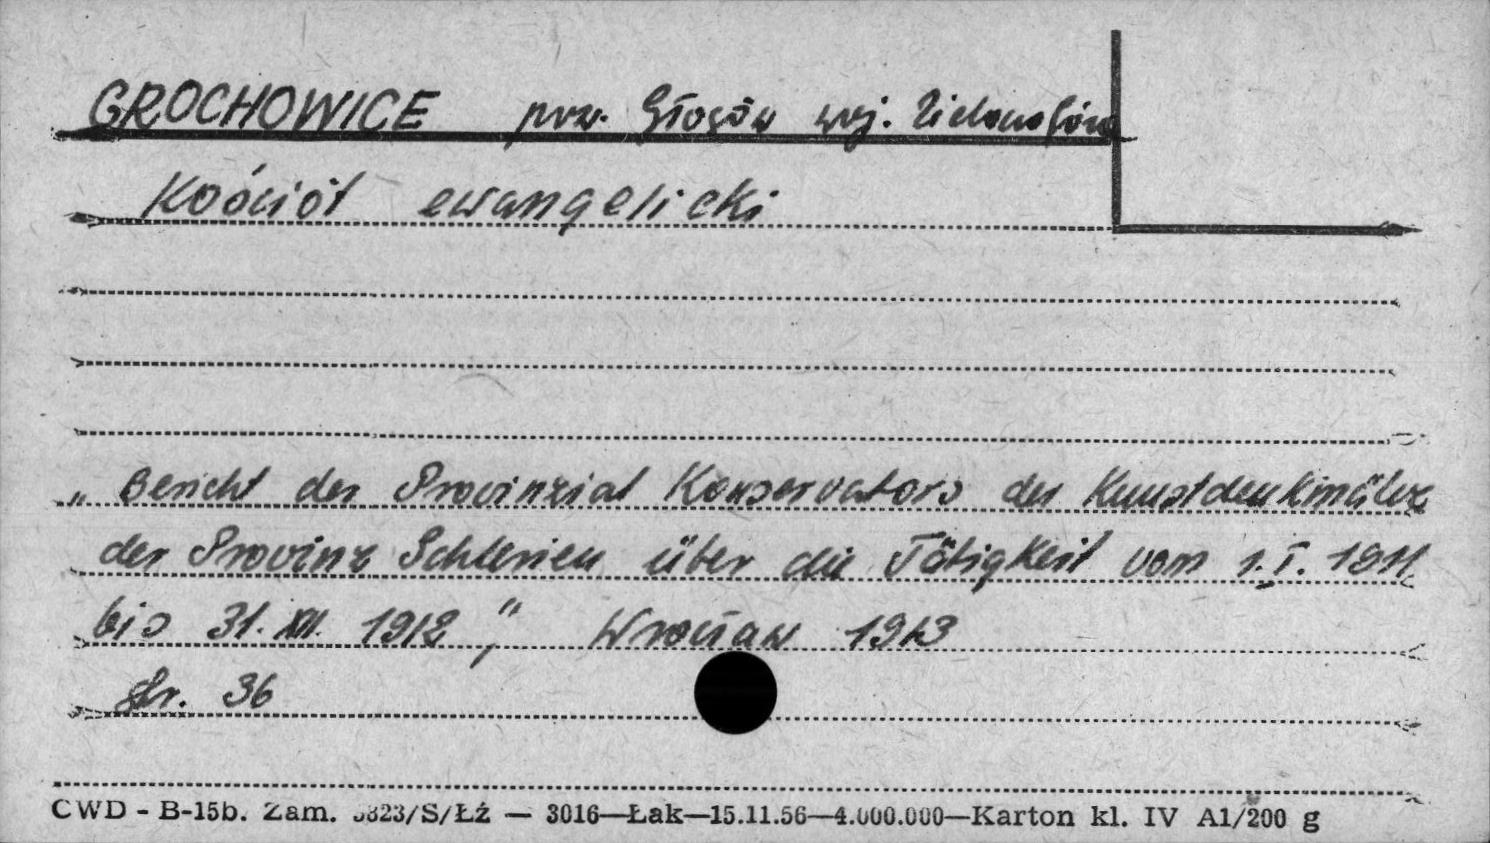 GROCHOWICE pow. Głogów woj. Zielonogór.
Kościół ewangelicki
„Bericht des Provinzial Konservators der Kunstdenkmäler
der Provinz Schlesien über die Tätigkeit vom 1.I.1911
bis 31.XII.1912", Wrocław 1913
str. 36
CWD - B-15b. Zam. 3823/S/Łź — 3016—Łak—15.11.56—4.000.000—Karton kl. IV A1/200 g